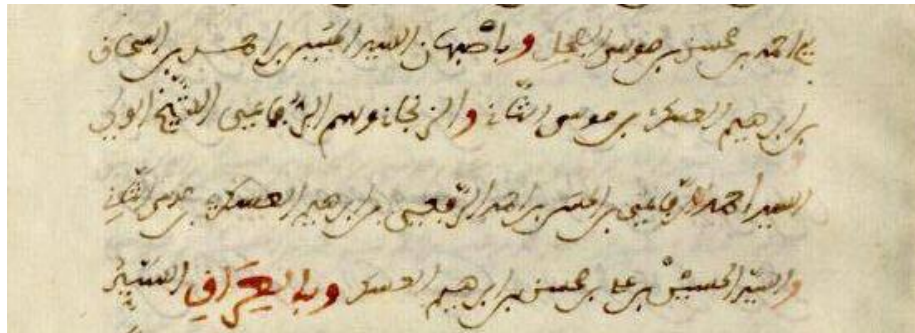 احمد بن محسن بن موسى وباصبهان السيد الحسين بن احمد بن اسحاق
بن ابرهيم العسكري بن موسى الثاني والزنجاني وسم الرفاعيى الشيخ الولي
السيد أحمد الرفاعيى بن الحسن بن احمد الرفيعيى بن ابرهيم العسكري بن موسى الثاني
والسيد الحسين بن علي بن محسن بن ابرهيم العسكر وبالعراق السيد